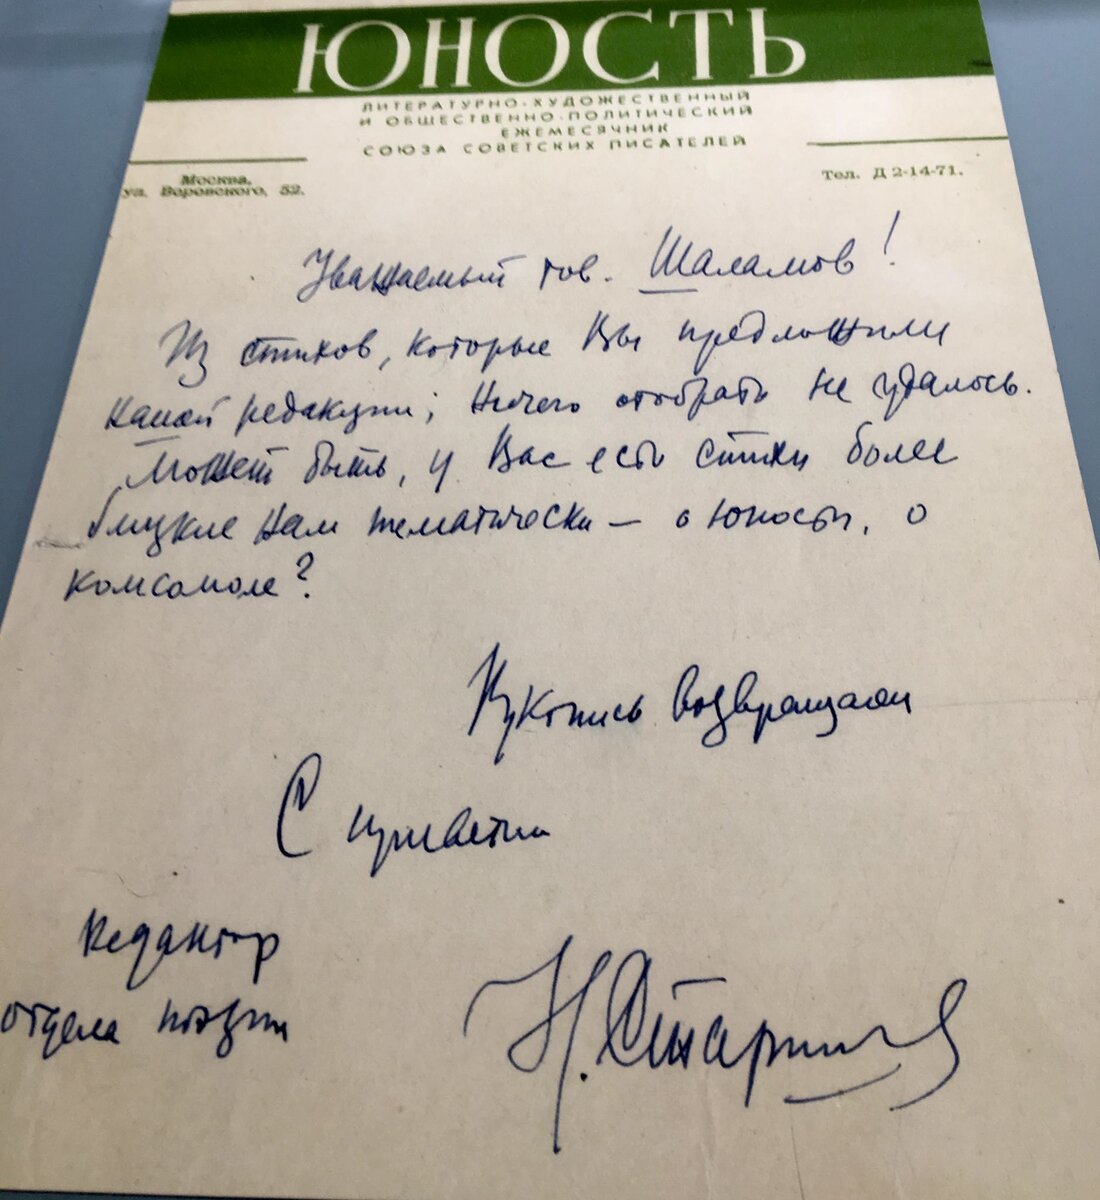 ЮНОСТЬ
ЛИТЕРАТУРНО-ХУДОЖЕСТВЕННЫЙ
И ОБЩЕСТВЕННО-ПОЛИТИЧЕСКИЙ
ЕЖЕМЕСЯЧНИК
СОЮЗА СОВЕТСКИХ ПИСАТЕЛЕЙ
Москва,
ул. Воровского, 52.
Тел. Д 2-14-71.
Уважаемый тов. Шаламов!
Из стихов, которые Вы предложили
нашей редакции, ничего отобрать не удалось.
Может быть, у Вас есть стихи более
близкие нам тематически — о юности, о
комсомоле?
Рукопись возвращаем
С приветом
Редактор
отдела поэзии
Н. Старшинов